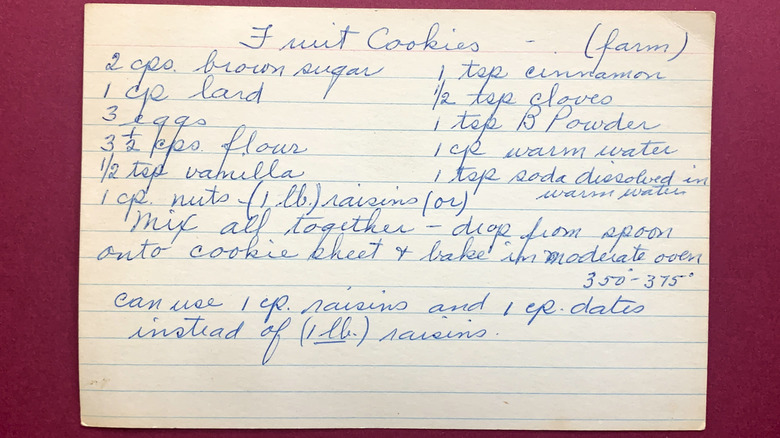 Fruit Cookies - . (farm)
2 cps. brown sugar
1 cp lard
3 eggs
3 1/2 cps. flour
1/2 tsp vanilla
1 cp. nuts - (1 lb.) raisins (or)
1 tsp cinnamon
1/2 tsp cloves
1 tsp B Powder
1 cp warm water
1 tsp soda dissolved in
warm water
Mix all together - drop from spoon
onto cookie sheet & bake in moderate oven
350° - 375°
can use 1 cp. raisins and 1 cp. dates
instead of (1 lb.) raisins.